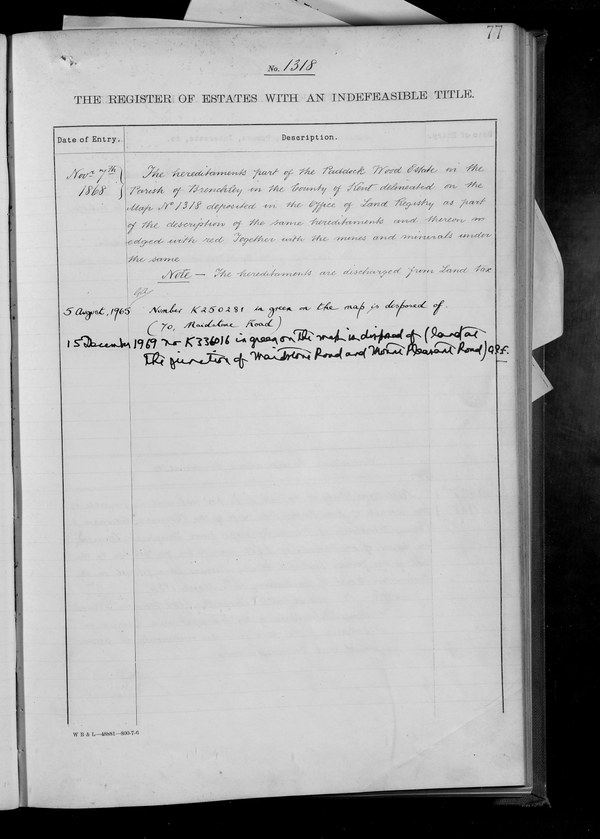 77
No. 1318
THE REGISTER OF ESTATES WITH AN INDEFEASIBLE TITLE.
Date of Entry.
Description.
Novr 7th
1868
The hereditaments part of the Paddock Wood Estate in the
Parish of Brenchley in the County of Kent delineated on the
Map No 1318 deposited in the Office of Land Registry as part
of the description of the same hereditaments and thereon
edged with red Together with the mines and minerals under
the same
Note — The hereditaments are discharged from Land tax
5 August, 1965 Number K250281 in green on the map is disposed of.
(70, Maidstone Road)
15 December 1969 No K336016 in green on the map is disposed of (land at
the junction of Maidstone Road and Mount Pleasant Road)
W B & L—48881—800-7-6